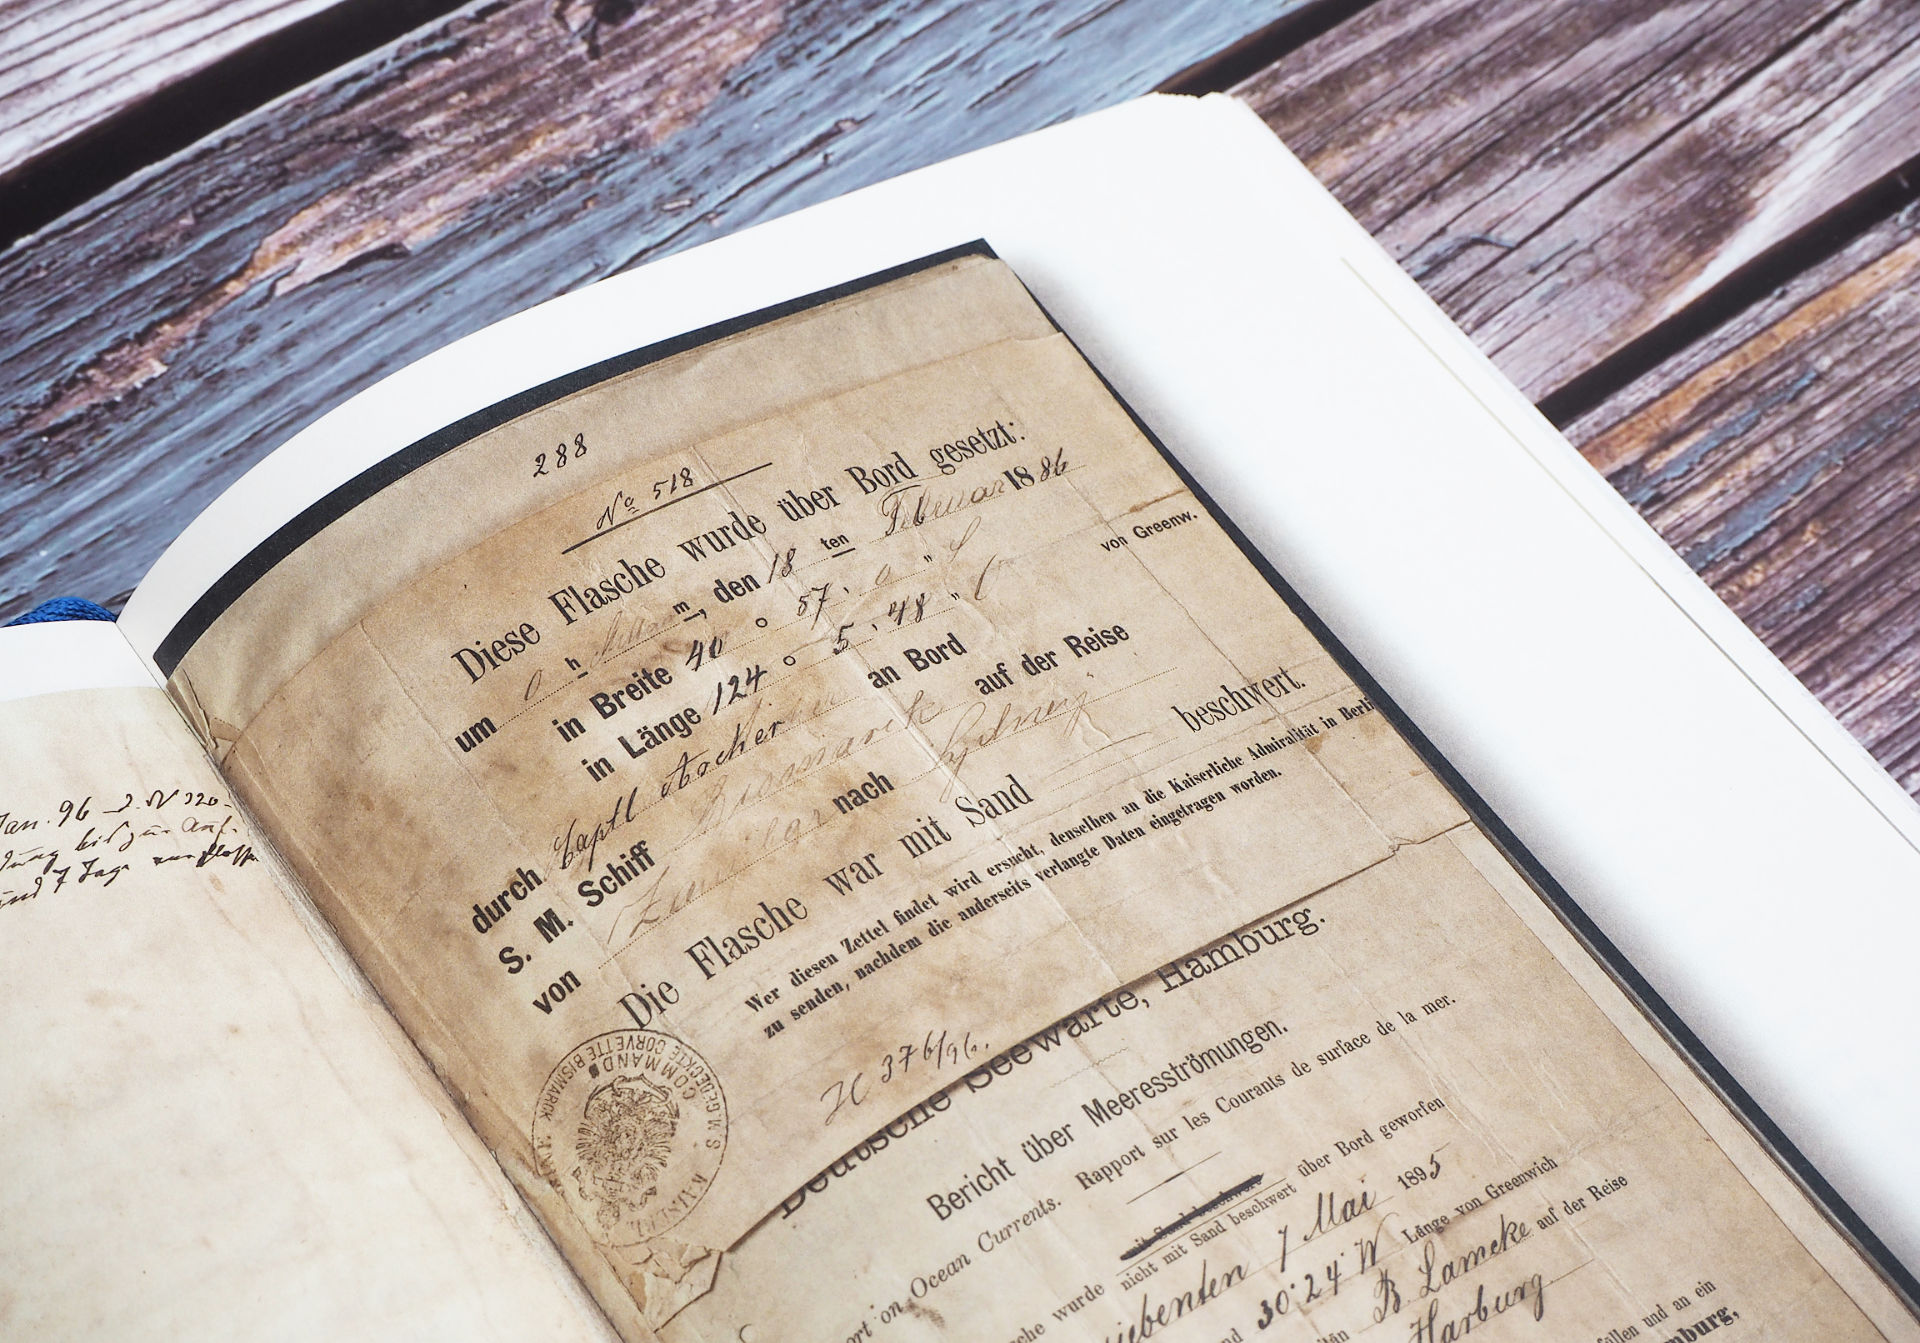 Jan. 96
288
No 518
Diese Flasche wurde über Bord gesetzt:
um 0 h Mittam m, den 18 ten Februar 1886
in Breite 40 ° 57 ' 0 " S
in Länge 124 ° 5 ' 48 " von Greenw.
durch Captl an Bord
S. M. Schiff Bismarck auf der Reise
von Zanzibar nach Sydney
Die Flasche war mit Sand — beschwert.
Wer diesen Zettel findet wird ersucht, denselben an die Kaiserliche Admiralität in Berli
zu senden, nachdem die anderseits verlangte Daten eingetragen worden.
376/96.
KAISERL. MARINE
S.M.S. GEDECKTE CORVETTE BISMARCK
COMMANDO
Deutsche Seewarte, Hamburg.
Bericht über Meeresströmungen.
ort on Ocean Currents. Rapport sur les Courants de surface de la mer.
mit Sand beschwert
che wurde nicht mit Sand beschwert über Bord geworfen
siebenten 7 Mai 1895
nd 30° 24' W Länge von Greenwich
itän B Lameke auf der Reise
Harburg
fallen und an ein
mburg,